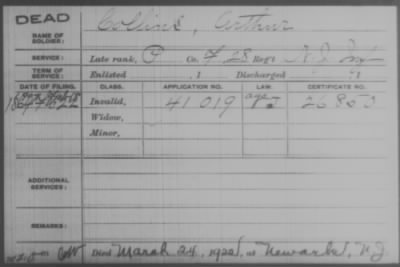 DEAD
NAME OF SOLDIER: Collins, Arthur
SERVICE: Late rank, P Co. F, 28 Reg't N.J. Inf
TERM OF SERVICE: Enlisted , 1 Discharged , 1
DATE OF FILING. CLASS. APPLICATION NO. LAW. CERTIFICATE NO.
Invalid, 41019
Widow,
Minor,
ADDITIONAL SERVICES:
REMARKS:
Died March 24, 1922, at Newark, N.J.